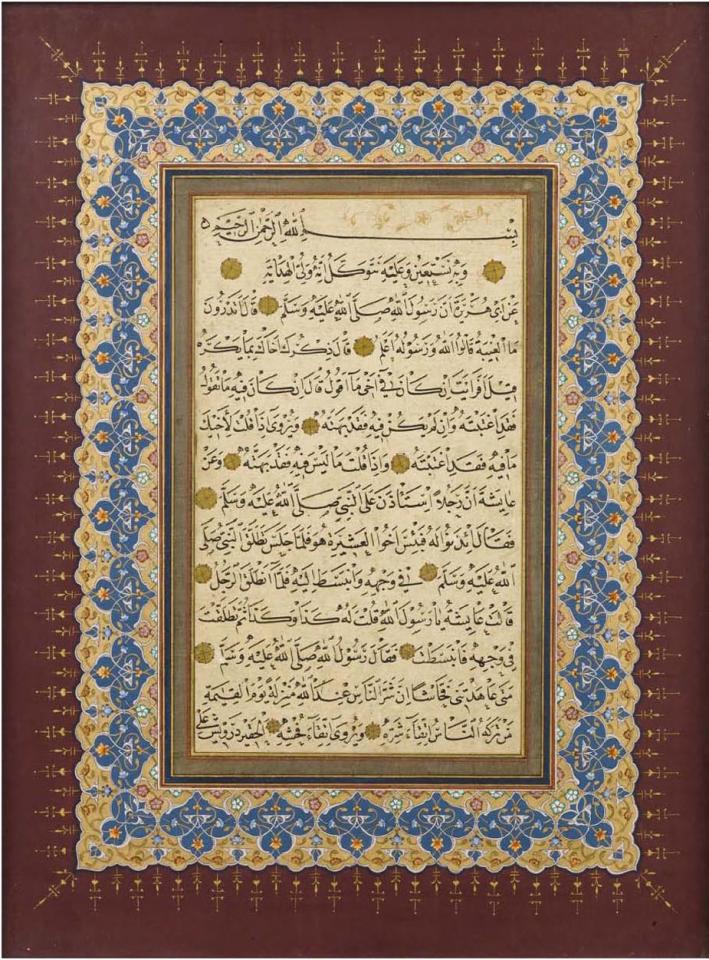 بسم الله الرحمن الرحيم
وبه نستعين وعليه نتوكل انه ولي الهداية
عن ابي هريرة ان رسول الله صلى الله عليه وسلم قال اتدرون
ما الغيبة قالوا الله ورسوله اعلم قال ذكرك اخاك بما يكره
قيل افرايت ان كان في اخي ما اقول قال ان كان فيه ما تقول
فقد اغتبته وان لم يكن فيه فقد بهته ويروى اذا قلت لاخيك
ما فيه فقد اغتبته واذا قلت ما ليس فيه فقد بهته وعن
عايشة ان رجلا استاذن على النبي صلى الله عليه وسلم
فقال ائذنوا له فبئس اخوا العشيرة هو فلما جلس تطلق النبي صلى
الله عليه وسلم في وجهه وانبسط اليه فلما انطلق الرجل
قالت عايشة يا رسول الله قلت له كذا وكذا ثم تطلقت
في وجهه فانبسطت فقال رسول الله صلى الله عليه وسلم
متى عاهدتني فحاشا ان شر الناس عند الله منزلة يوم القيمة
من تركه الناس اتقاء شره ويروى اتقاء فحشه الحقير درويش علي